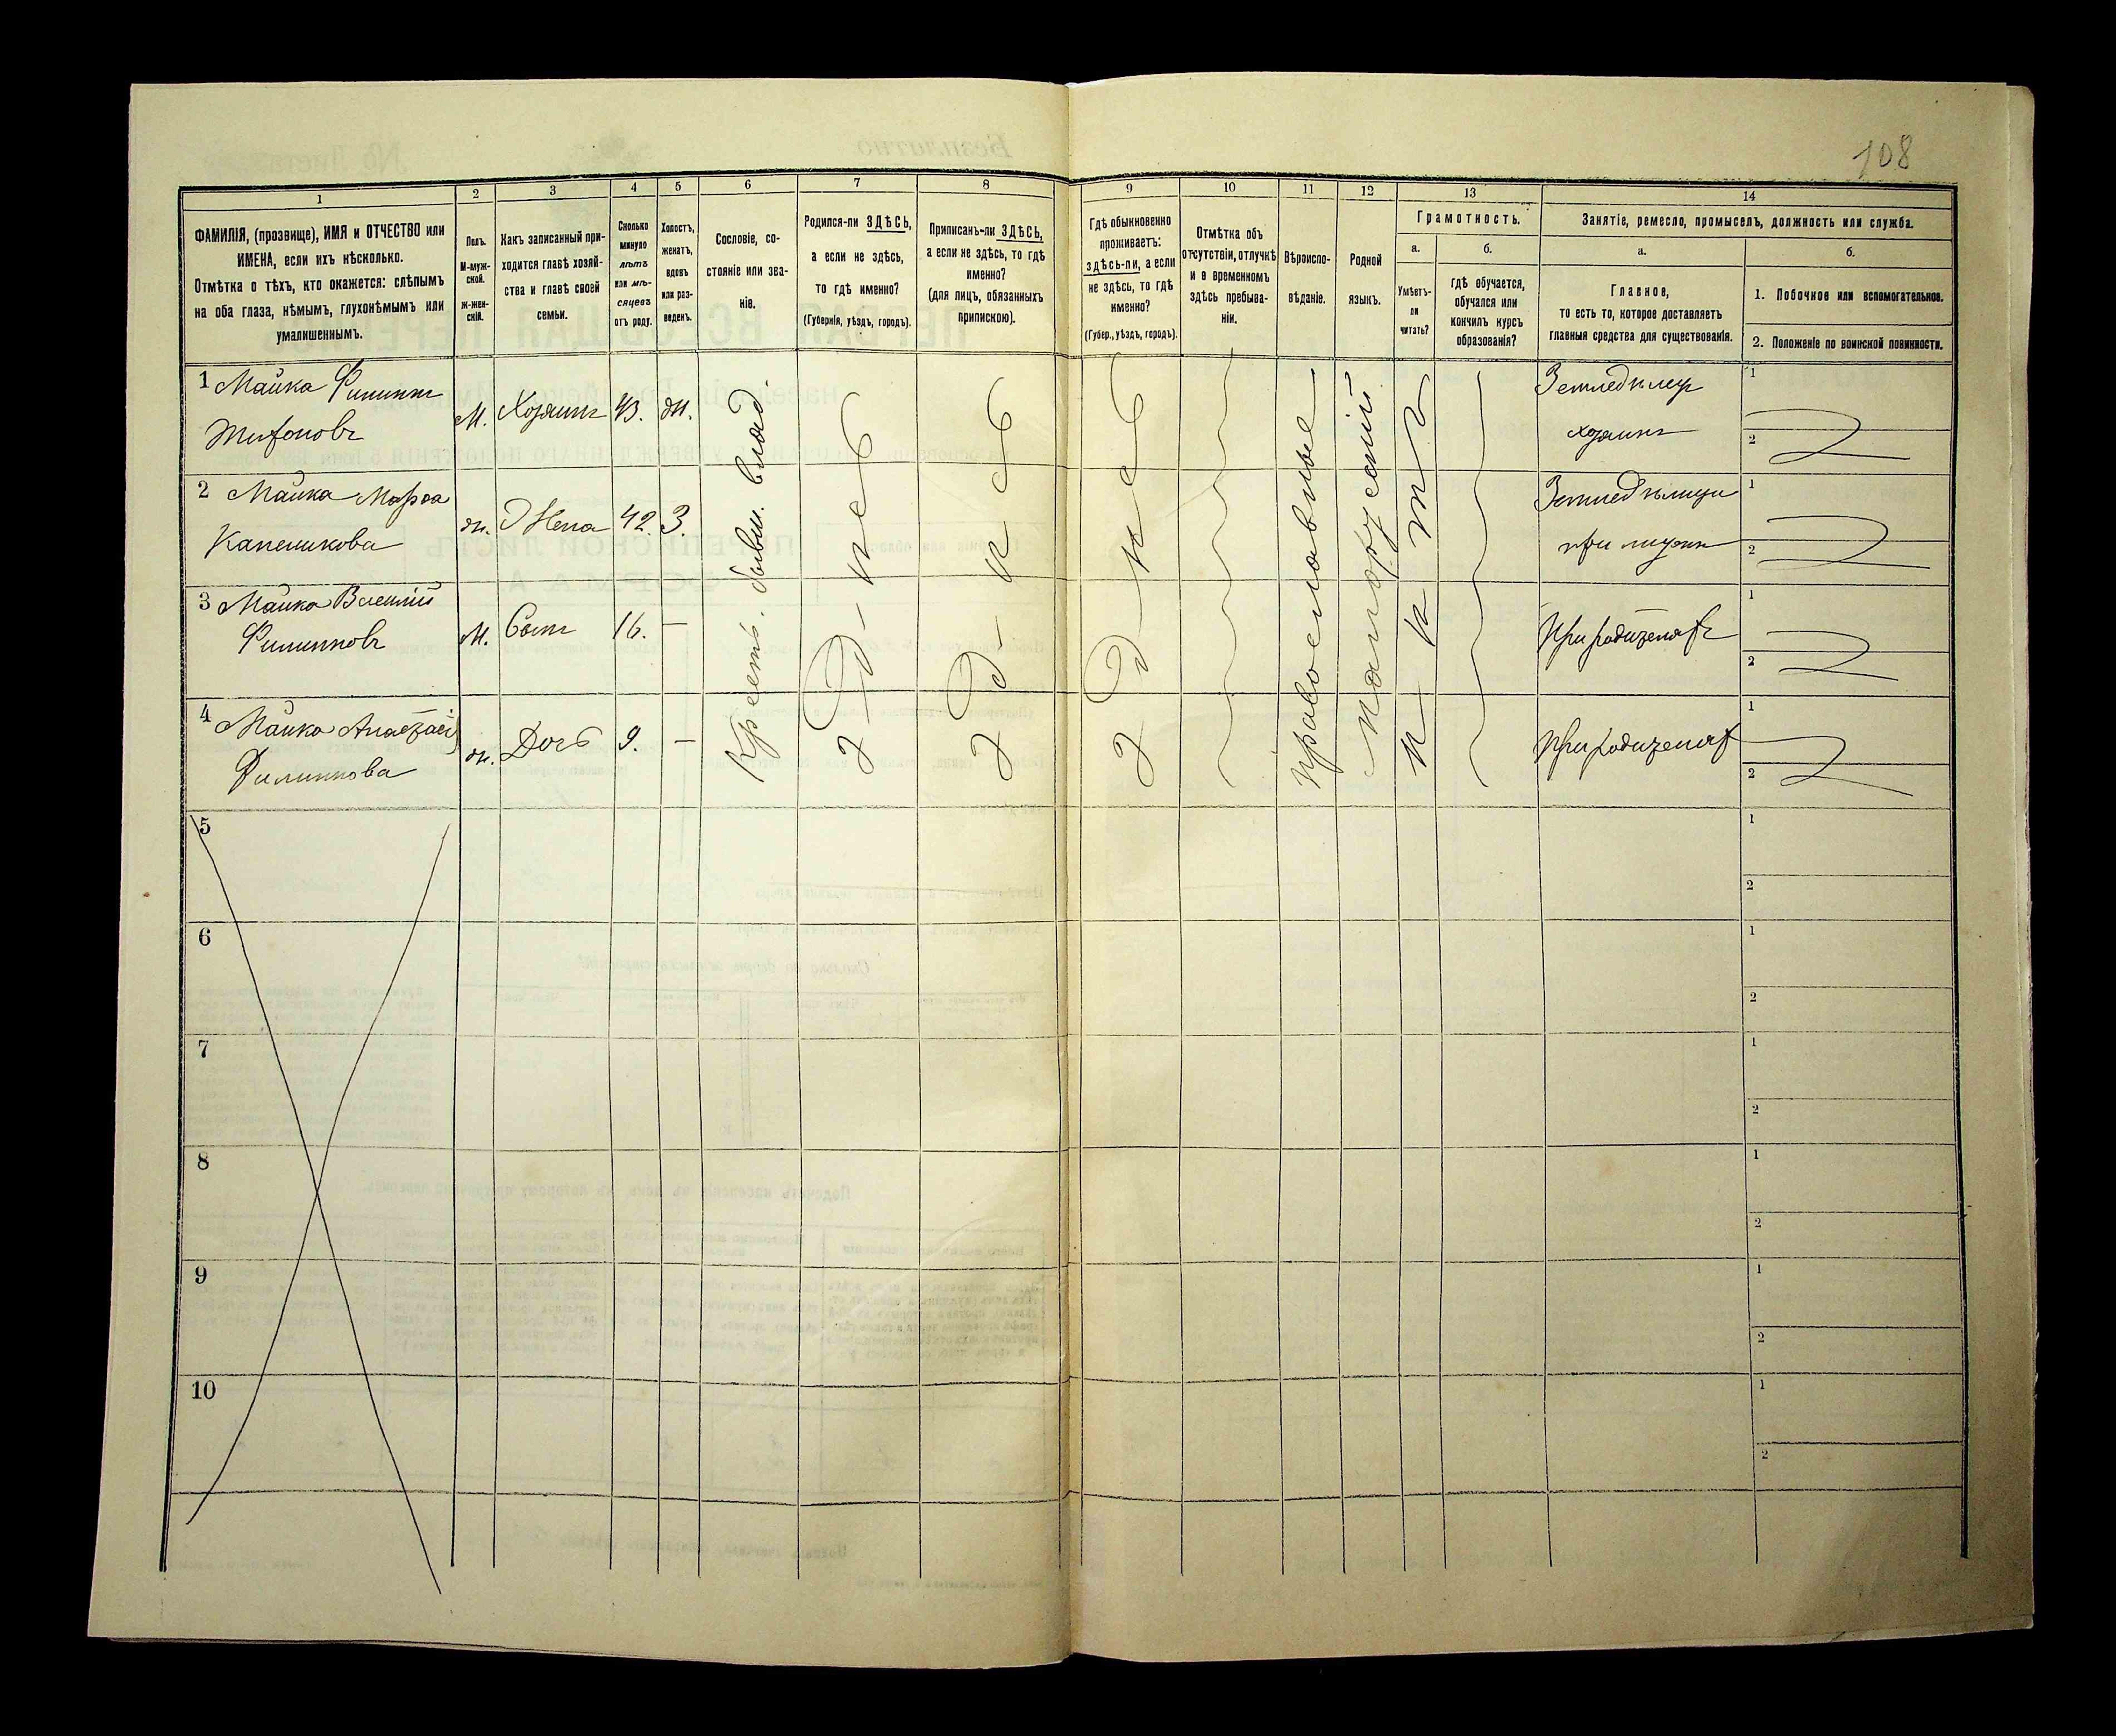 108
1 2 3 4 5 6 7 8 9 10 11 12 13 14
ФАМИЛІЯ, (прозвище), ИМЯ и ОТЧЕСТВО или
ИМЕНА, если ихъ нѣсколько.
Отмѣтка о тѣхъ, кто окажется: слѣпымъ
на оба глаза, нѣмымъ, глухонѣмымъ или
умалишеннымъ.
Полъ.
М-муж-
ской.
ж-жен-
скій.
Какъ записанный при-
ходится главѣ хозяй-
ства и главѣ своей
семьи.
Сколько
минуло
лѣтъ
или мѣ-
сяцевъ
отъ роду.
Холостъ,
женатъ,
вдовъ
или раз-
веденъ.
Сословіе, со-
стояніе или зва-
ніе.
Родился-ли ЗДѢСЬ,
а если не здѣсь,
то гдѣ именно?
(Губернія, уѣздъ, городъ).
Приписанъ-ли ЗДѢСЬ,
а если не здѣсь, то гдѣ
именно?
(для лицъ, обязанныхъ
припискою).
Гдѣ обыкновенно
проживаетъ:
здѣсь-ли, а если
не здѣсь, то гдѣ
именно?
(Губер., уѣздъ, городъ).
Отмѣтка объ
отсутствіи, отлучкѣ
и о временномъ
здѣсь пребыва-
ніи.
Вѣроиспо-
вѣданіе.
Родной
языкъ.
Грамотность.
а.
Умѣетъ-
ли
читать?
б.
Гдѣ обучается,
обучался или
кончилъ курсъ
образованія?
Занятіе, ремесло, промыселъ, должность или служба.
а.
Главное,
то есть то, которое доставляетъ
главныя средства для существованія.
б.
1. Побочное или вспомогательное.
2. Положеніе по воинской повинности.
1 Майка Филиппъ М. Хозяинъ 43. ж. Земледѣлецъ 1
хозяинъ 2
2 Майка Марфа ж. Жена 42 З. 1
при 2
3 Майка Василій М. Сынъ 16. — При родителяхъ 1
Филипповъ 2
4 Майка ж. Дочь 9. — При родителях 1
Филиппова 2
Крест. бывш. влад.
Здѣсь
Здѣсь
Здѣсь
Православные
Малорусскій
Нѣтъ
5 1
2
6 1
2
7 1
2
8 1
2
9 1
2
10 1
2